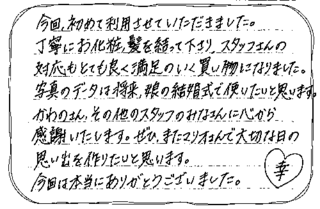 今回、初めて利用させていただきました。
丁寧にお化粧、髪を結って下さり、スタッフさんの
対応もとても良く満足のいく買い物になりました。
写真のデータは将来、娘の結婚式で使いたいと思います。
かわのさん、その他のスタッフのみなさんに心から
感謝いたします。ぜひ、またマリオさんで大切な日の
思い出を作りたいと思います。
今回は本当にありがとうございました。
幸